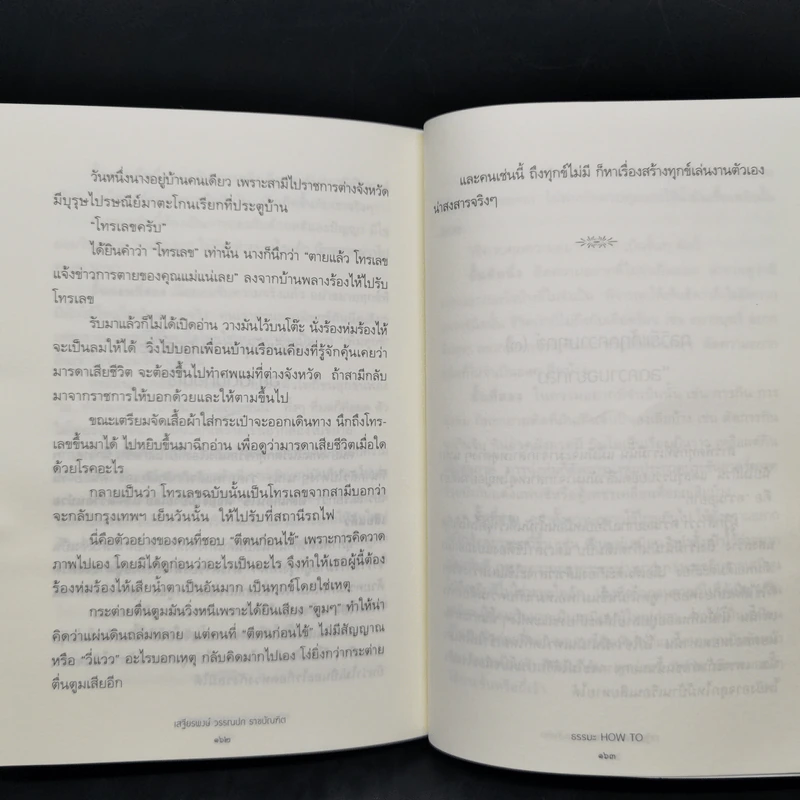 วันหนึ่งนางอยู่บ้านคนเดียว เพราะสามีไปราชการต่างจังหวัด
มีบุรุษไปรษณีย์มาตะโกนเรียกที่ประตูบ้าน
"โทรเลขครับ"
ได้ยินคำว่า "โทรเลข" เท่านั้น นางก็นึกว่า "ตายแล้ว โทรเลข
แจ้งข่าวการตายของคุณแม่แน่เลย" ลงจากบ้านพลางร้องไห้ไปรับ
โทรเลข
รับมาแล้วก็ไม่ได้เปิดอ่าน วางมันไว้บนโต๊ะ นั่งร้องห่มร้องไห้
จะเป็นลมให้ได้ วิ่งไปบอกเพื่อนบ้านเรือนเคียงที่รู้จักคุ้นเคยว่า
มารดาเสียชีวิต จะต้องขึ้นไปทำศพแม่ที่ต่างจังหวัด ถ้าสามีกลับ
มาจากราชการให้บอกด้วยและให้ตามขึ้นไป
ขณะเตรียมจัดเสื้อผ้าใส่กระเป๋าจะออกเดินทาง นึกถึงโทร-
เลขขึ้นมาได้ ไปหยิบขึ้นมาฉีกอ่าน เพื่อดูว่ามารดาเสียชีวิตเมื่อใด
ด้วยโรคอะไร
กลายเป็นว่า โทรเลขฉบับนั้นเป็นโทรเลขจากสามีบอกว่า
จะกลับกรุงเทพฯ เย็นวันนั้น ให้ไปรับที่สถานีรถไฟ
นี่คือตัวอย่างของคนที่ชอบ "ตีตนก่อนไข้" เพราะการคิดวาด
ภาพไปเอง โดยมิได้ดูก่อนว่าอะไรเป็นอะไร จึงทำให้เธอผู้นี้ต้อง
ร้องห่มร้องไห้เสียน้ำตาเป็นอันมาก เป็นทุกข์โดยใช่เหตุ
กระต่ายตื่นตูมมันวิ่งหนีเพราะได้ยินเสียง "ตูมๆ" ทำให้น่า
คิดว่าแผ่นดินถล่มทลาย แต่คนที่ "ตีตนก่อนไข้" ไม่มีสัญญาณ
หรือ "วี่แวว" อะไรบอกเหตุ กลับคิดมากไปเอง โง่ยิ่งกว่ากระต่าย
ตื่นตูมเสียอีก
เสฐียรพงษ์ วรรณปก ราชบัณฑิต
๑๖๒
และคนเช่นนี้ ถึงทุกข์ไม่มี ก็หาเรื่องสร้างทุกข์เล่นงานตัวเอง
น่าสงสารจริงๆ
ธรรมะ HOW TO
๑๖๓